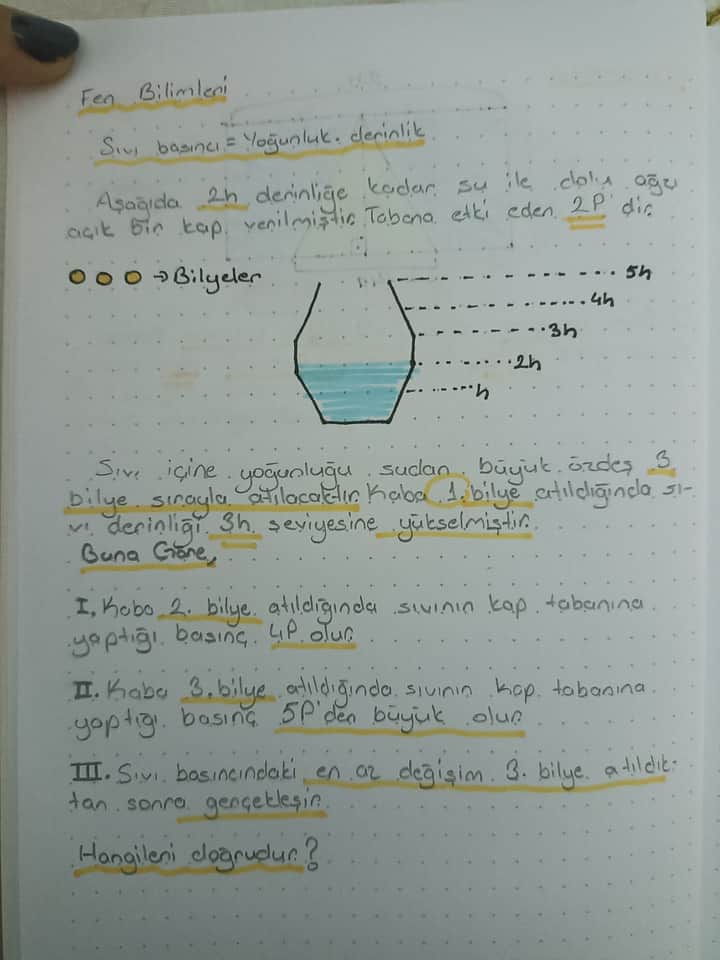 Fen Bilimleri
Sıvı basıncı = Yoğunluk. derinlik
Aşağıda 2h derinliğe kadar su ile dolu ağzı
açık bir kap verilmiştir. Tabana etki eden 2P'dir.
→ Bilyeler
5h
4h
3h
2h
h
Sıvı içine yoğunluğu sudan büyük özdeş 3
bilye sırayla atılacaktır. Kaba 1. bilye atıldığında sı-
vı derinliği 3h seviyesine yükselmiştir.
Buna Göre,
I. Kaba 2. bilye atıldığında sıvının kap tabanına
yaptığı basınç 4P olur.
II. Kaba 3. bilye atıldığında sıvının kap tabanına
yaptığı basınç 5P'den büyük olur.
III. Sıvı basıncındaki en az değişim 3. bilye atıldık-
tan sonra gerçekleşir.
Hangileri doğrudur?